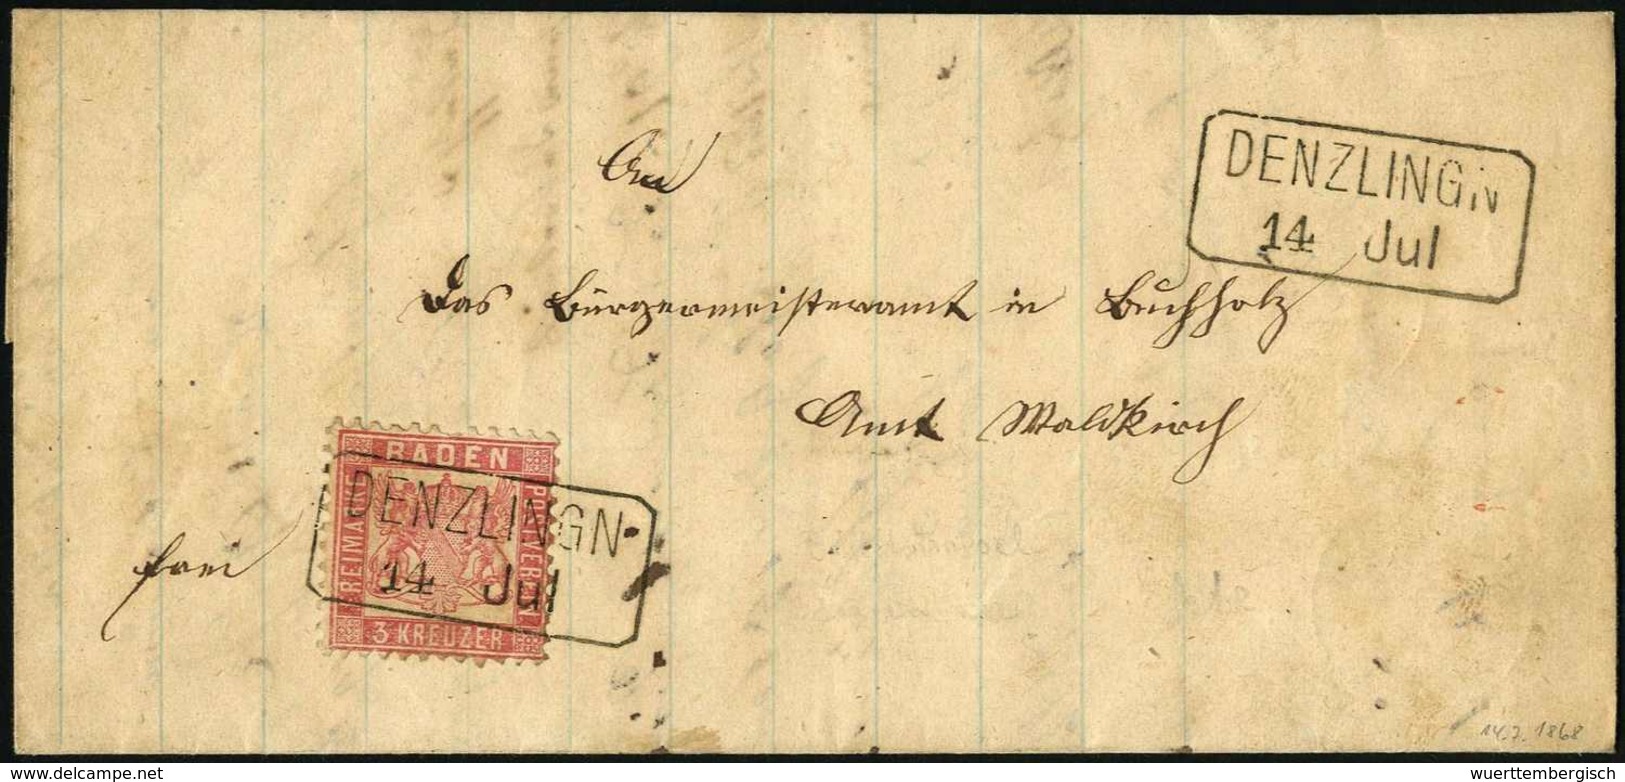 An
DENZLINGN
14 Jul
Das Bürgermeisteramt in Buchholz
Amt Waldkirch
frei
BADEN
FREIMARKE
POSTVEREIN
3 KREUZER
DENZLINGN
14 Jul
14.7.1868
delcampe.net
wuerttembergisch